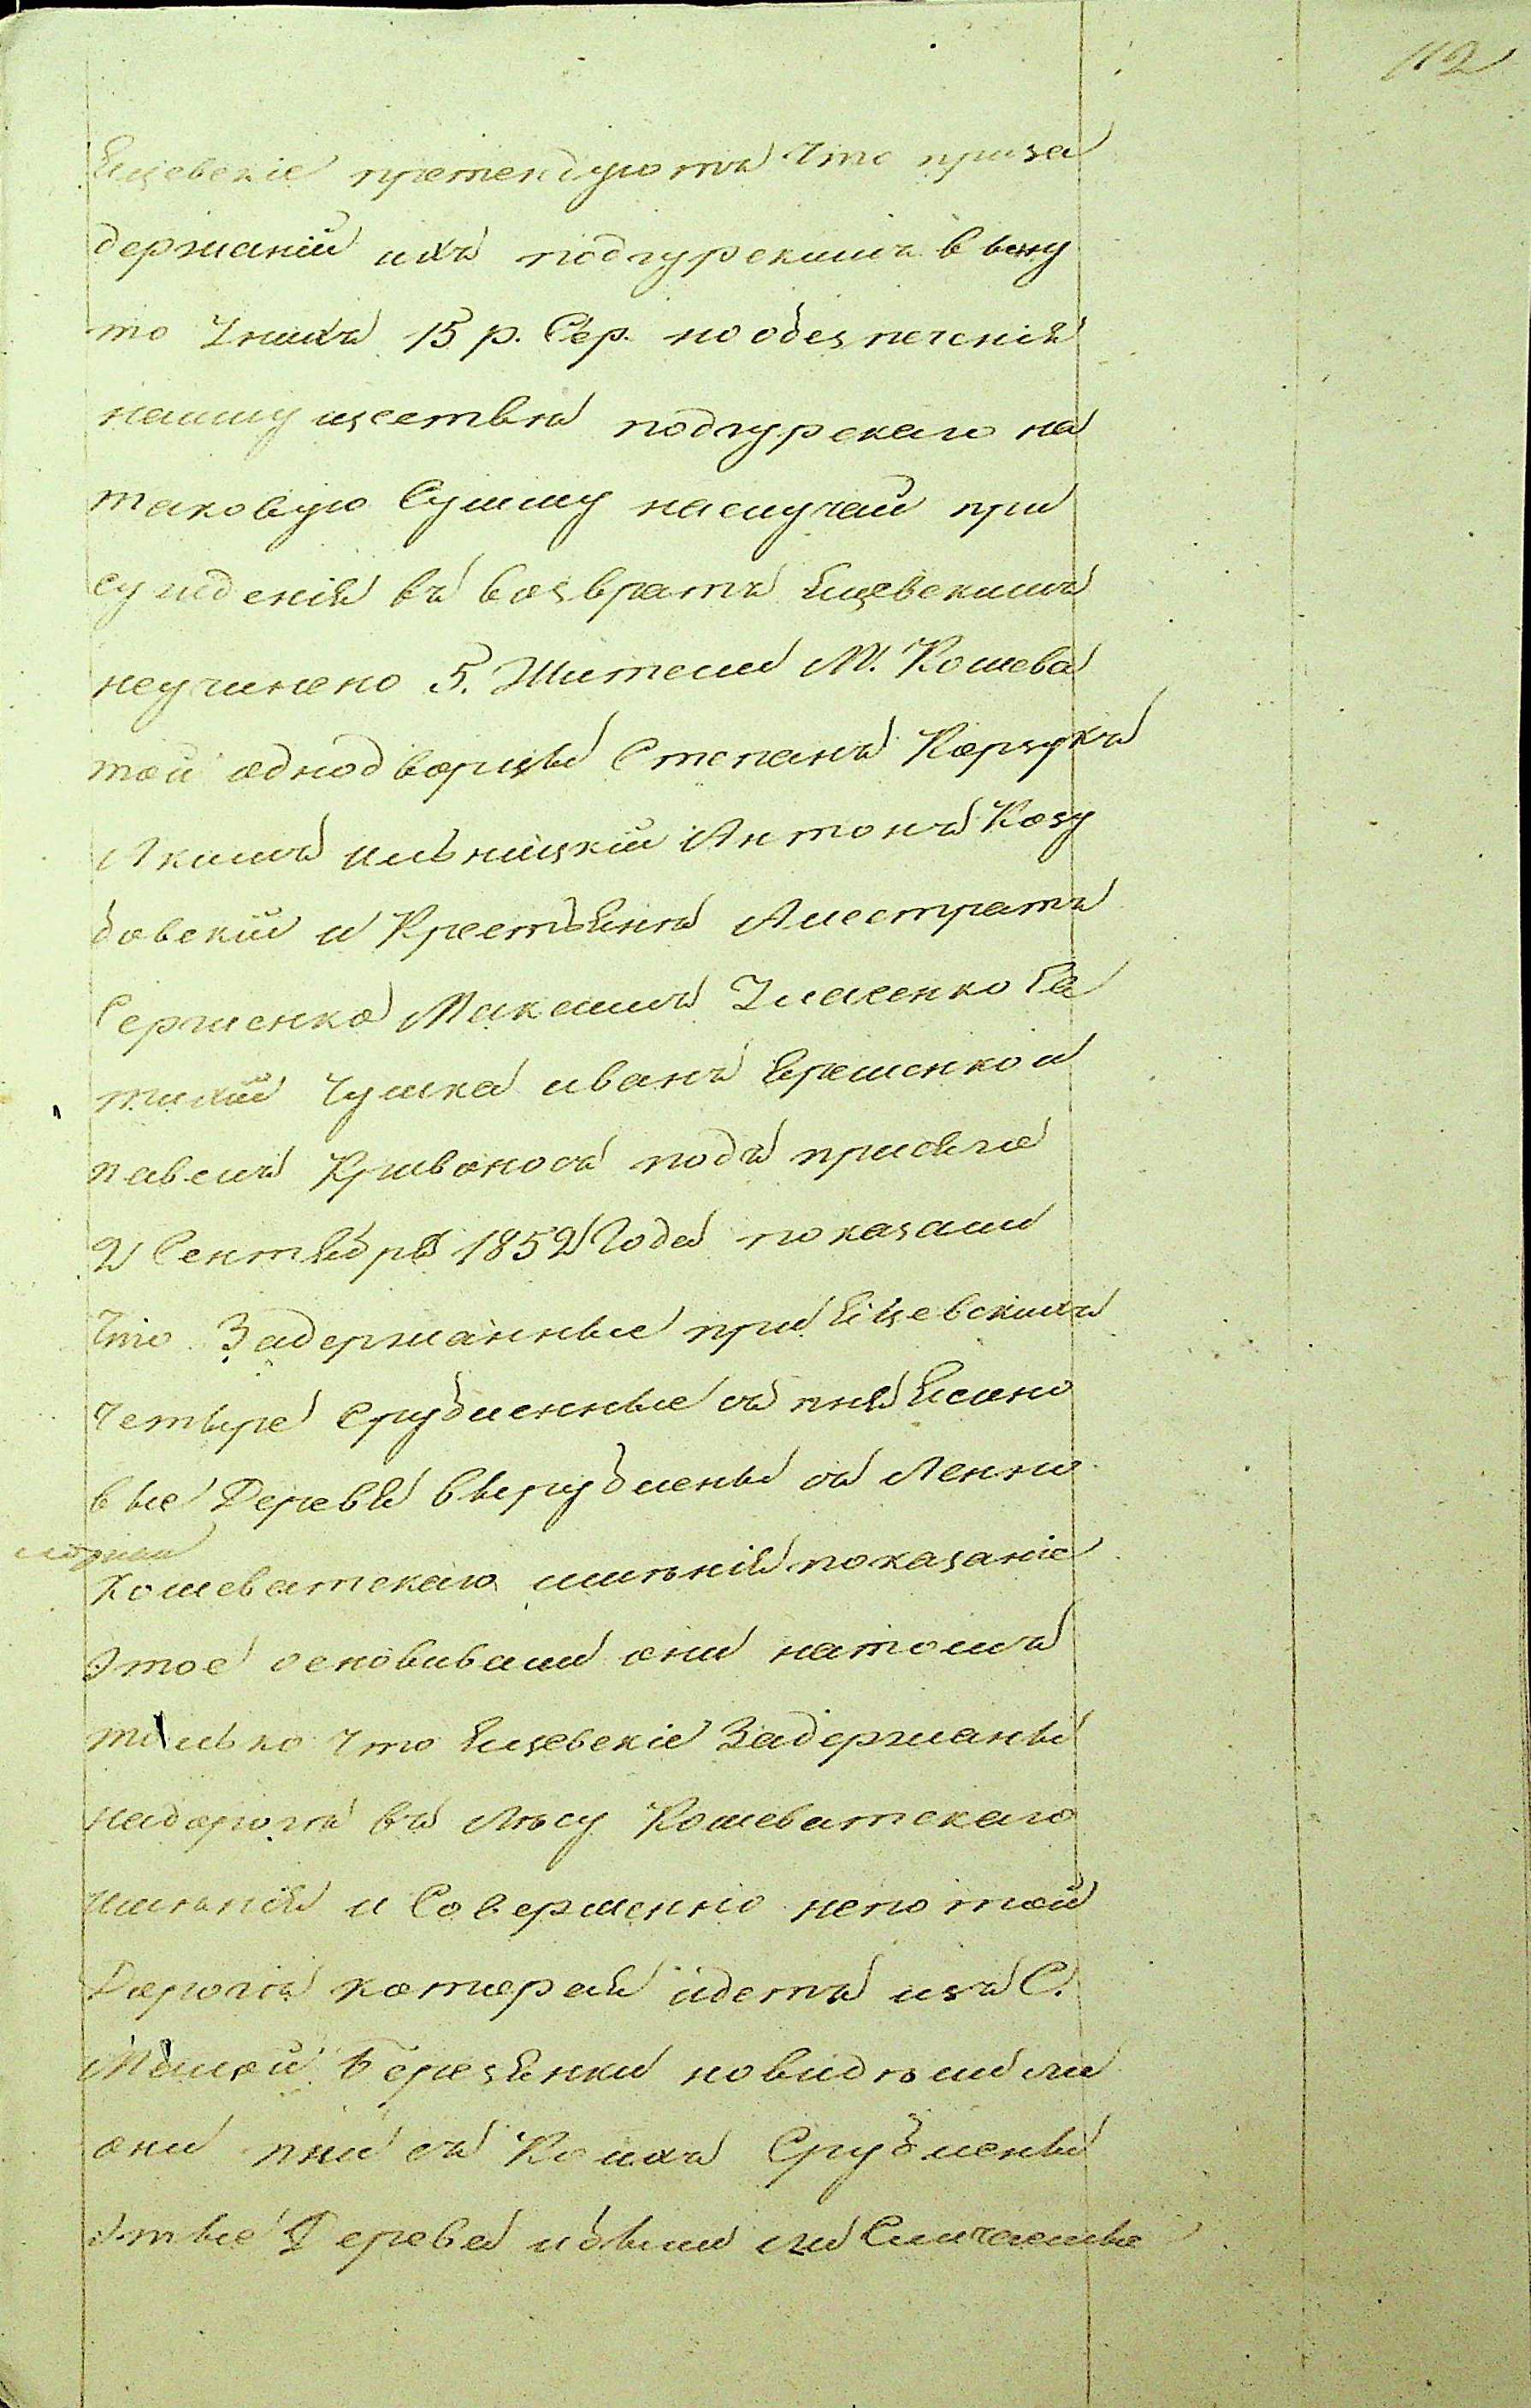 112
Яцевскіе претендуютъ что приза
держаніи ихъ подгурскимъ выну
то Унихъ 15 р. Сер. но обезпеченія
наимуществѣ подгурскаго на
таковую Сумму наслучаи при
сужденія въ возвратъ Яцевскимъ
неучинено 5. Жители М. Кошева
той однодворцы Степанъ Корзукъ
Якимъ ильницкій Антонъ Козу
бовскій и Крестьяня Алистратъ
Сергіенко Максимъ Уласенко Га
тихій Чумка иванъ Яременко и
павелъ Кривоносъ подъ присяго
2 Сентября 1852 Года показали
Что Задержанные при Яцевскихъ
четыре Срубленные съ пня Ясино
вые Дерева вырублены съ Ленно
Кошеватскаго имѣнія показаніе
Этое основивали они натомъ
только что Яцевскіе Задержаны
надорогѣ въ Лѣсу Кошеватскаго
имѣнія и Совершенно непо той
Дорогѣ которая идетъ изъ С.
Малой Березянки новидѣли ли
они пни съ Коихъ Срублены
Этые Дерева ибыли ли Сличаемые